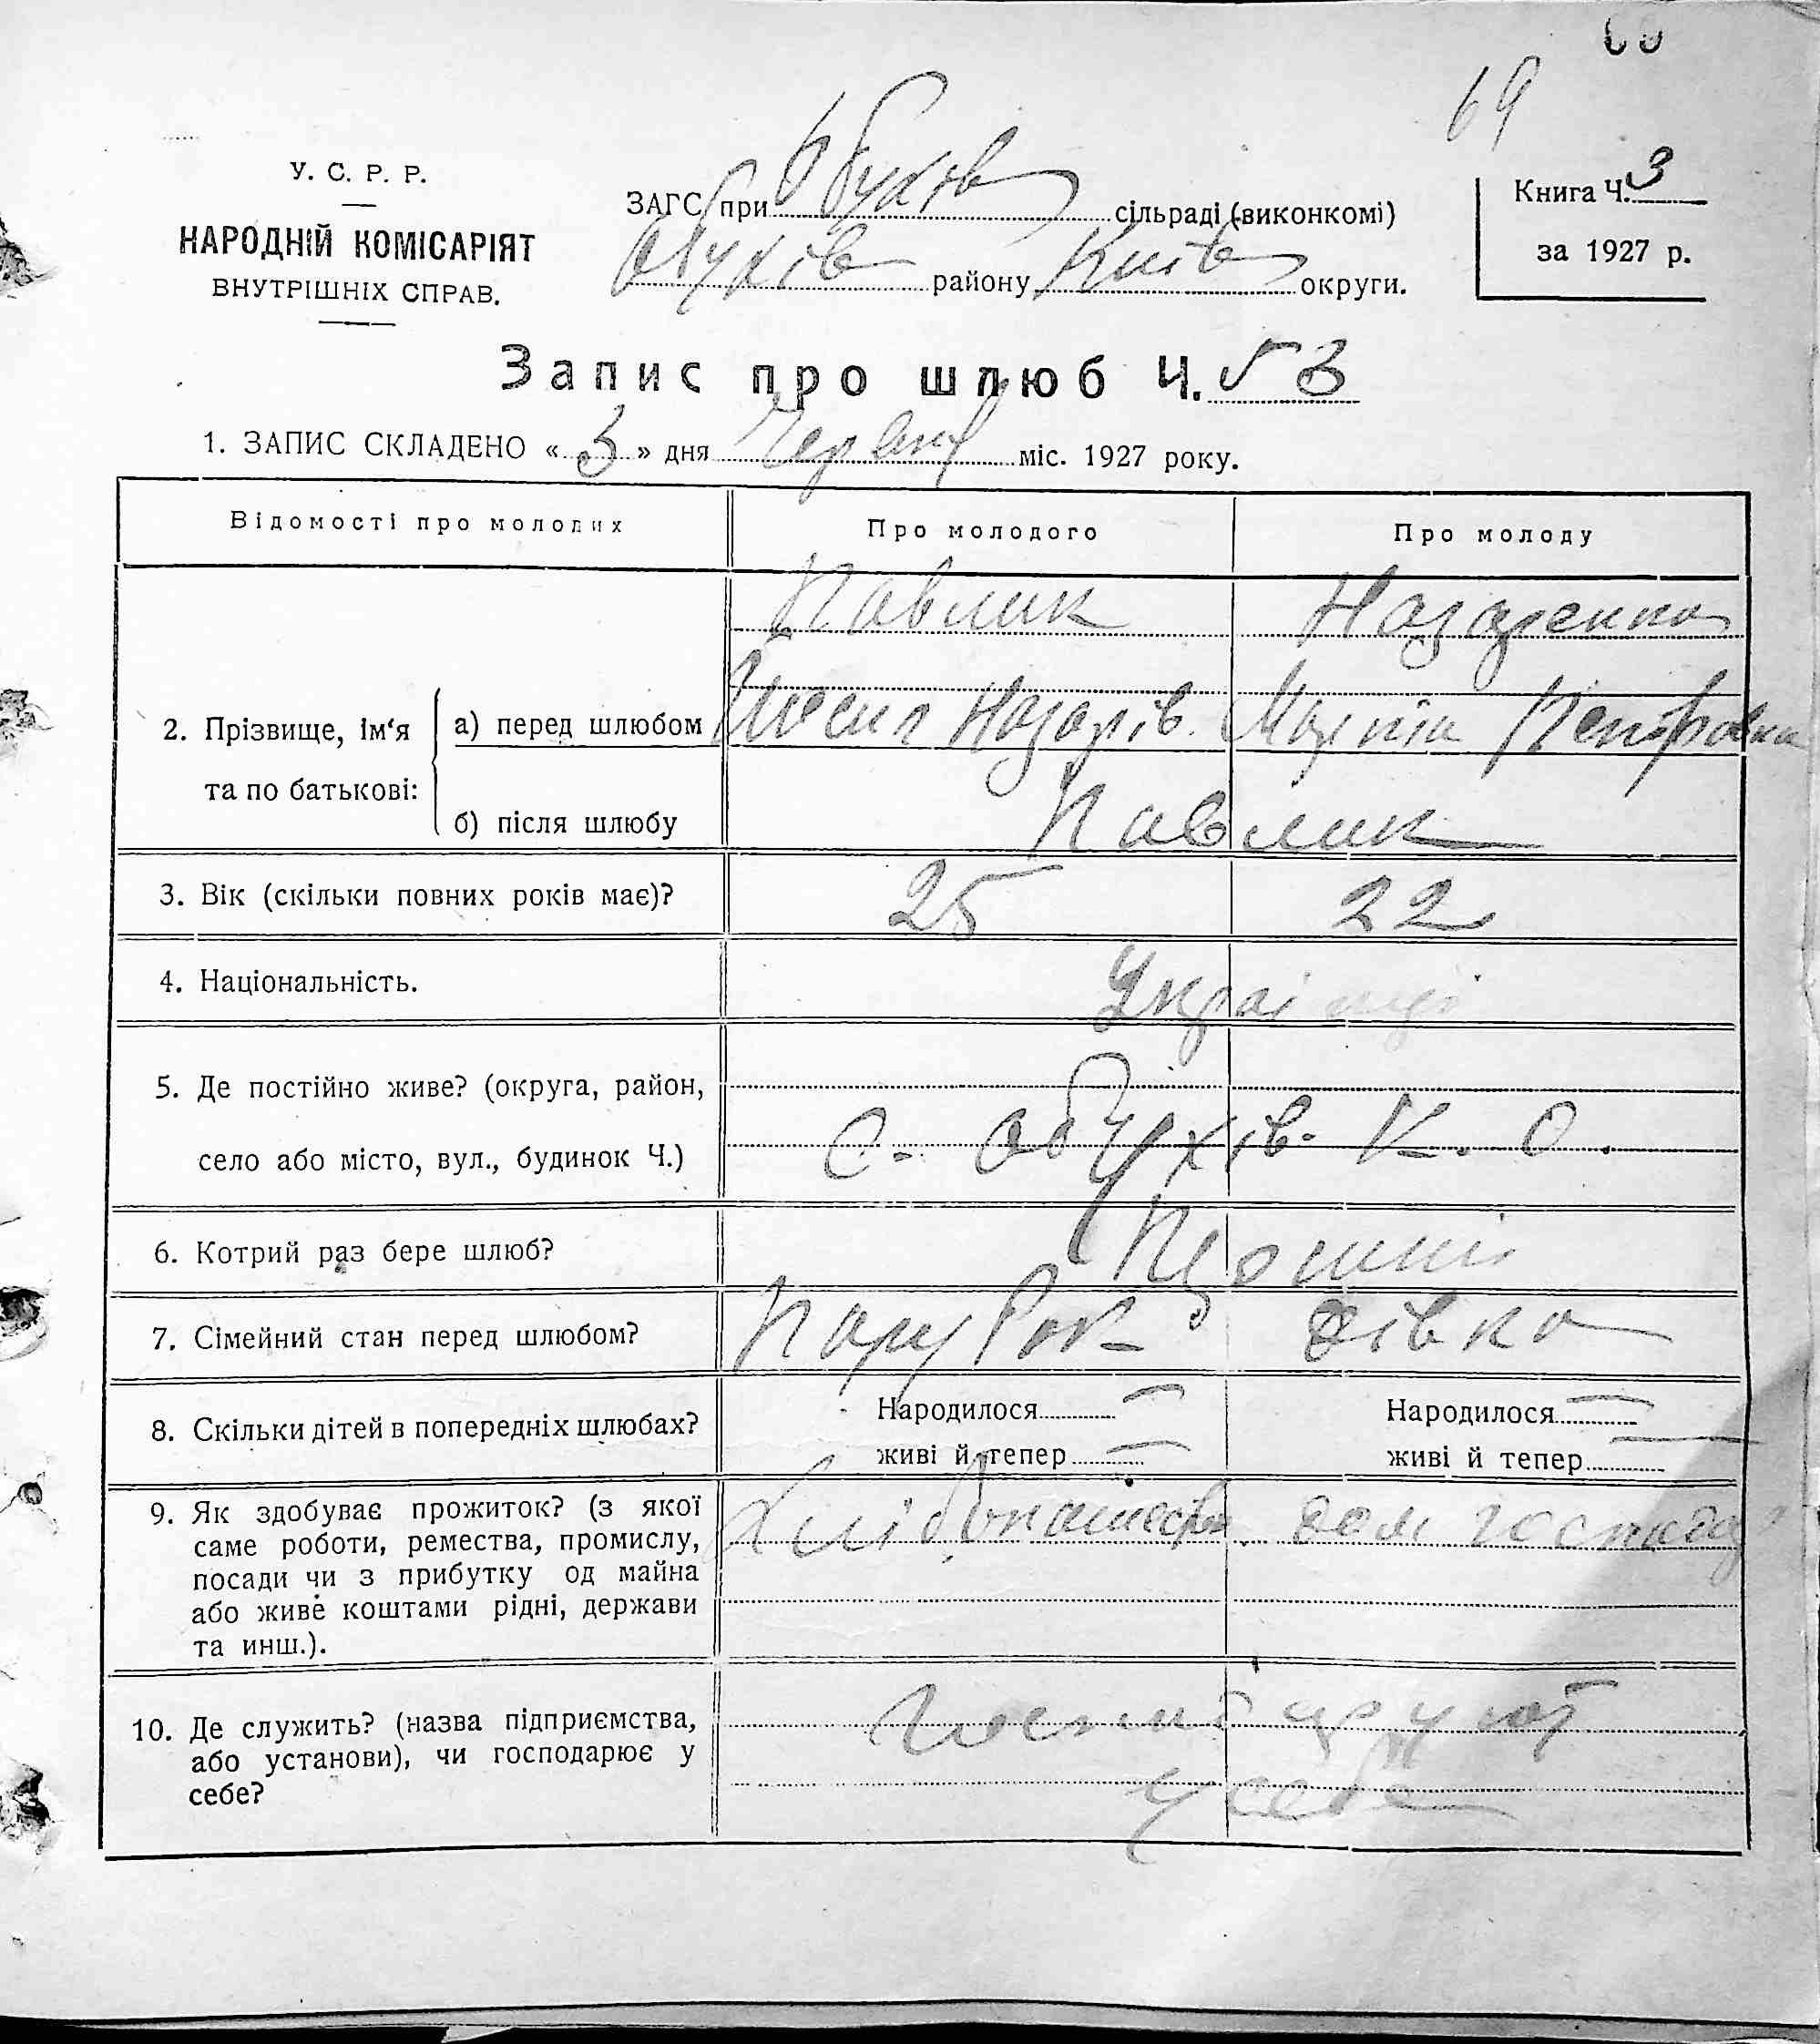 69
У. С. Р. Р.
НАРОДНІЙ КОМІСАРІЯТ
ВНУТРІШНІХ СПРАВ.
ЗАГС при Обухів сільраді (виконкомі)
Обухів району Київ округи.
Книга Ч. 3
за 1927 р.
Запис про шлюб Ч. 53
1. ЗАПИС СКЛАДЕНО « 3 » дня Червня міс. 1927 року.
Відомості про молодих Про молодого Про молоду
Павлик Назаренко
2. Прізвище, ім‘я та по батькові:
а) перед шлюбом Йосип Назарів. Марпіи Петровна
б) після шлюбу Павлик
3. Вік (скільки повних років має)? 25 22
4. Національність. Українці
5. Де постійно живе? (округа, район,
село або місто, вул., будинок Ч.) с. Обухів. К. О.
6. Котрий раз бере шлюб?
7. Сімейний стан перед шлюбом? Парубок дівка
8. Скільки дітей в попередніх шлюбах? Народилося — Народилося —
живі й тепер — живі й тепер —
9. Як здобуває прожиток? (з якої Хліборобство дом господар
саме роботи, ремества, промислу,
посади чи з прибутку од майна
або живе коштами рідні, держави
та инш.).
10. Де служить? (назва підприємства,
або установи), чи господарює у
себе? у себе